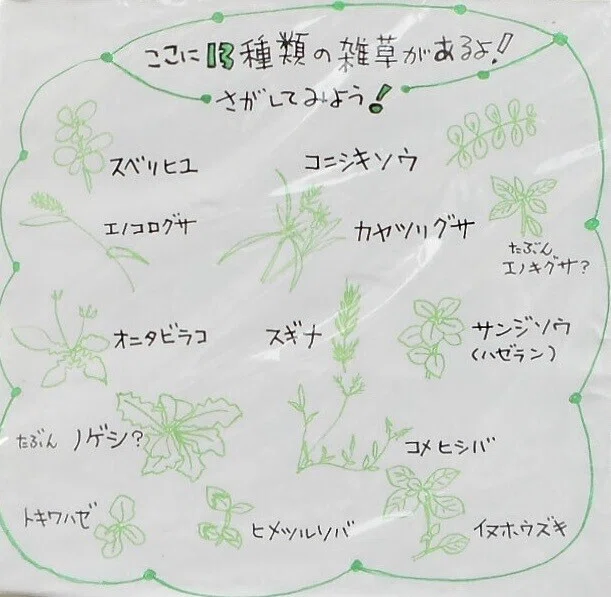 ここに13種類の雑草があるよ!
さがしてみよう!
スベリヒユ
コニシキソウ
エノコログサ
カヤツリグサ
たぶん
エノキグサ?
オニタビラコ
スギナ
サンジソウ
(ハゼラン)
たぶん ノゲシ?
コメヒシバ
トキワハゼ
ヒメツルソバ
イヌホウズキ